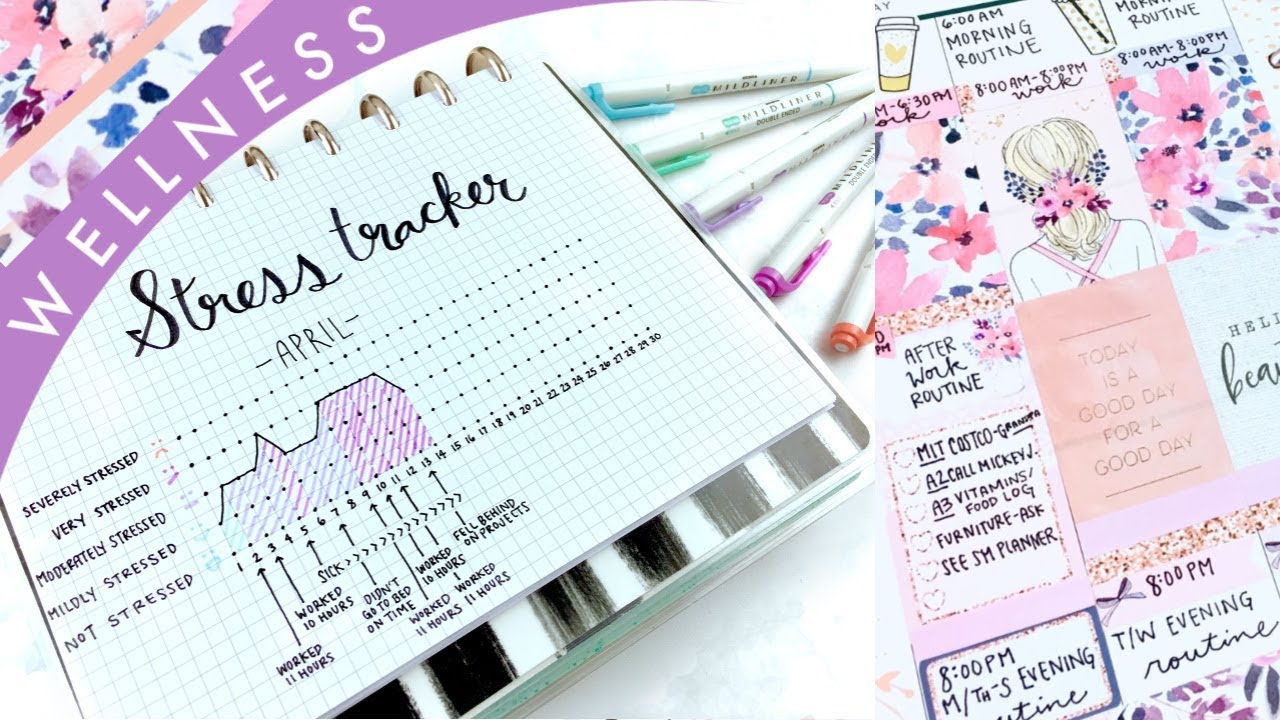 WELLNESS
Stress tracker
-APRIL-
SEVERELY STRESSED
VERY STRESSED
MODERATELY STRESSED
MILDLY STRESSED
NOT STRESSED
1 2 3 4 5 6 7 8 9 10 11 12 13 14 15 16 17 18 19 20 21 22 23 24 25 26 27 28 29 30
WORKED
11 HOURS
WORKED
10 HOURS
SICK >>>>>>>>>>>
DIDN'T
GO TO BED
ON TIME
WORKED
11 HOURS
WORKED
10 HOURS
WORKED
11 HOURS
FELL BEHIND
ON PROJECTS
MILDLINER
DOUBLE ENDED
MILDLINER
DOUBLE ENDED
MILDLINER
MILDLINER
DOUBLE
6:00 AM
MORNING
ROUTINE
8:00AM-8:00PM
work
MORNING
ROUTINE
8:00AM-8:00PM
work
-6:30PM
AFTER
Work
ROUTINE
MIT COSTCO-GRANDPA
A2 CALL MICKEY J.
A3 VITAMINS/
FOOD LOG
FURNITURE-ASK
SEE SM PLANNER
8:00PM
M/TH-S EVENING
TODAY
IS A
GOOD DAY
FOR A
GOOD DAY
8:00PM
T/W EVENING
routine